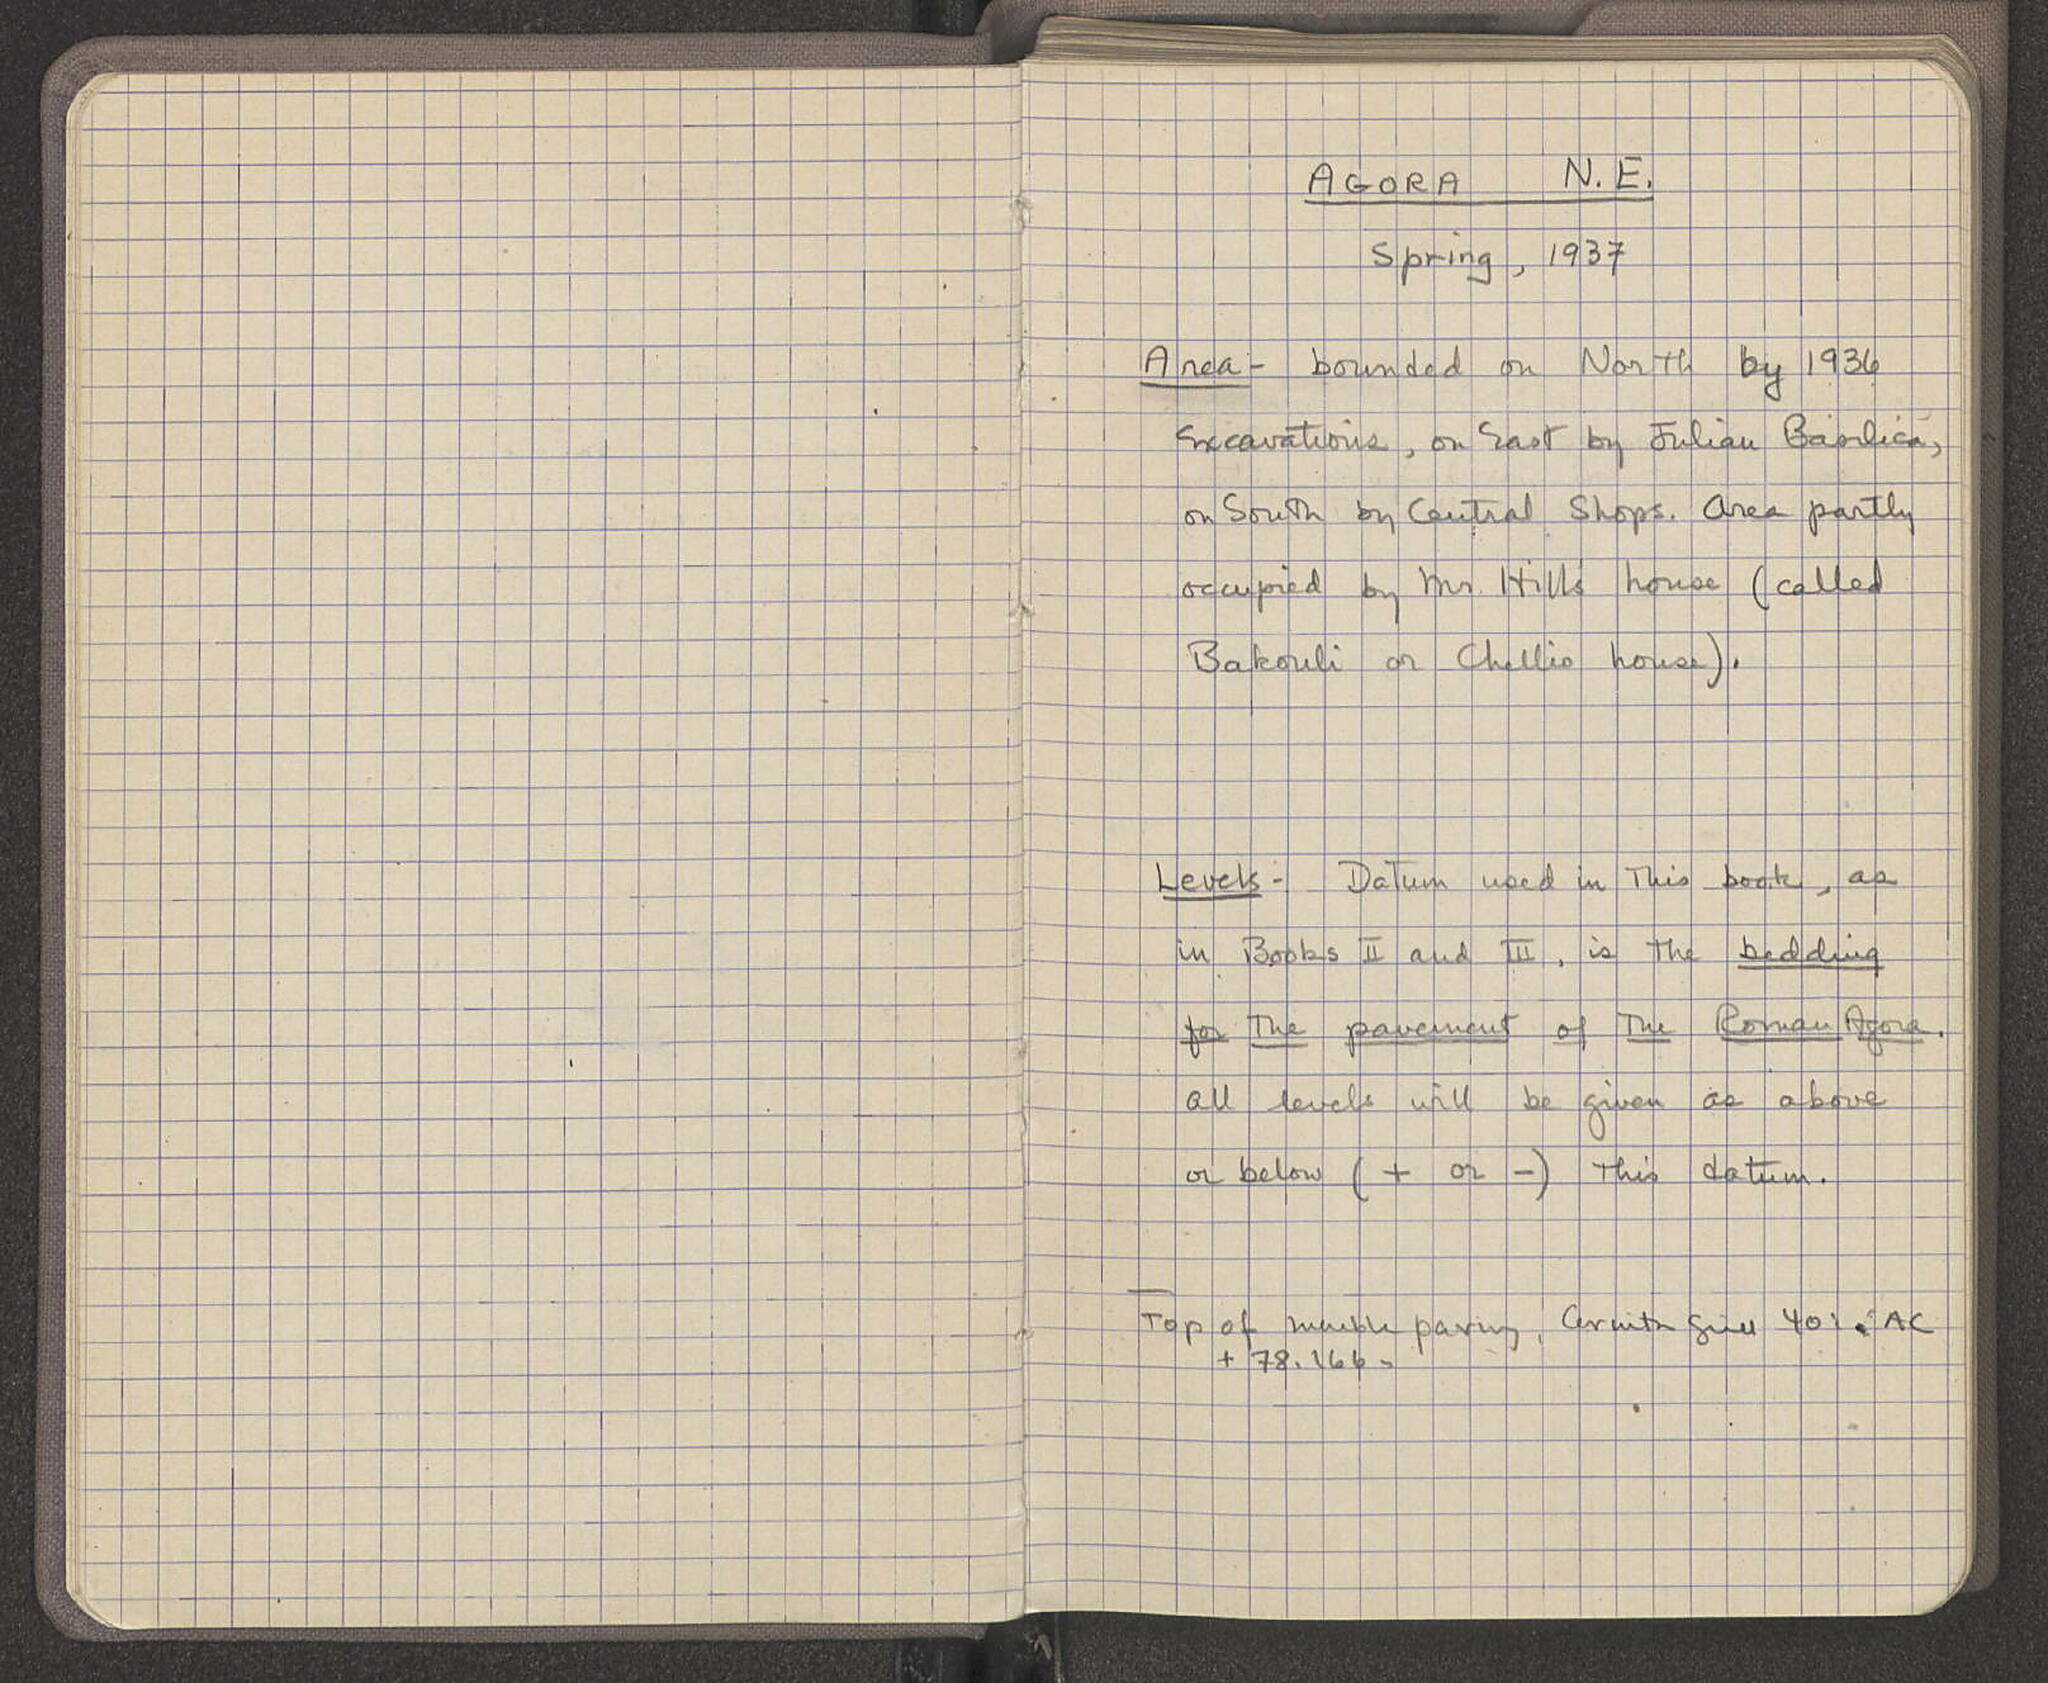 AGORA N.E.
Spring, 1937
Area - bounded on North by 1936
Excavations, on East by Julian Basilica,
on South by Central Shops. Area partly
occupied by Mr. Hill's house (called
Bakouli or Chellio house).
Levels - Datum used in this book, as
in Books II and III, is the bedding
for the pavement of the Roman Agora.
All levels will be given as above
or below (+ or -) this datum.
Top of marble paving, Corinth AC
+ 78.166 -